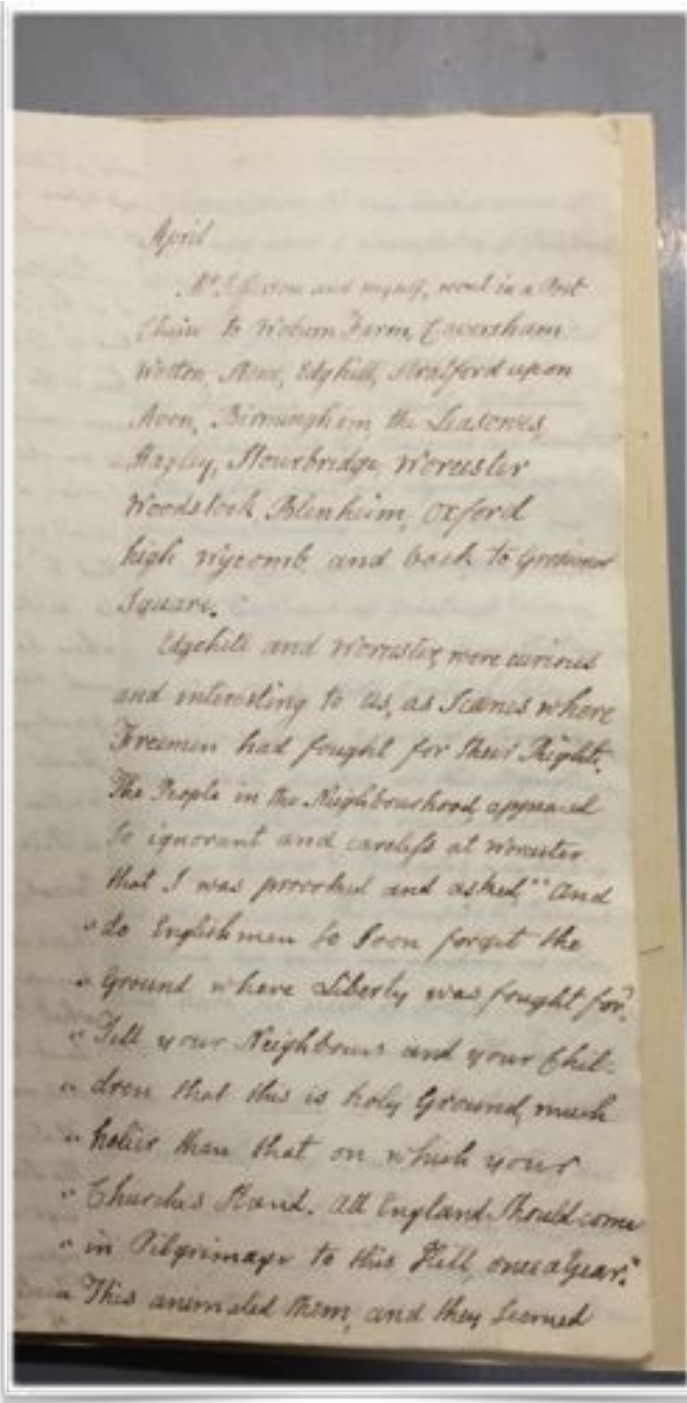 April
Mr. Jefferson and myself, went in a Post
Chaise to Woburn Farm, Caversham
Wotton, Stow, Edghill, Stratford upon
Avon, Birmingham, the Leasowes,
Hagley, Stourbridge, Worcester
Woodstock, Blenheim, Oxford
high Wycomb, and back to Grosvenor
Square.
Edgehill and Worcester were curious
and interesting to Us, as Scænes where
Freemen had fought for their Rights.
The People in the Neighbourhood, appeared
so ignorant and careless at Worcester
that I was provoked and asked, "And
"do Englishmen so soon forget the
"Ground where Liberty was fought for?
"Tell your Neighbours and your Chil-
"dren that this is holy Ground, much
"holier than that on which your
"Churches stand. All England should come
"in Pilgrimage to this Hill, once a Year."
"This animated them, and they seemed